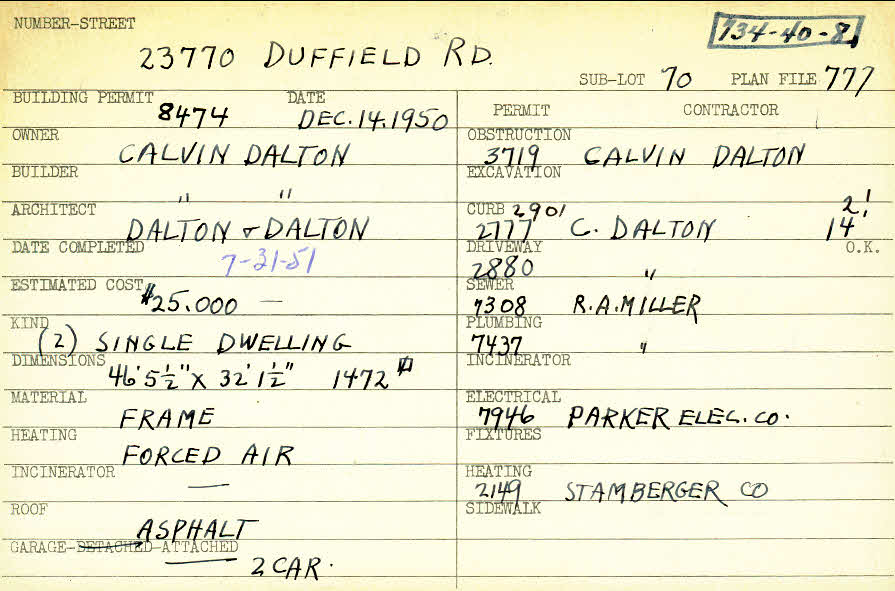 NUMBER-STREET
734-40-8
23770 DUFFIELD RD.
SUB-LOT 70 PLAN FILE 777
BUILDING PERMIT 8474 DATE DEC. 14. 1950
OWNER CALVIN DALTON
BUILDER " "
ARCHITECT DALTON & DALTON
DATE COMPLETED 7-31-51
ESTIMATED COST $25.000 —
KIND (2) SINGLE DWELLING
DIMENSIONS 46' 5½" X 32' 1½" 1472 #
MATERIAL FRAME
HEATING FORCED AIR
INCINERATOR —
ROOF ASPHALT
GARAGE-DETACHED-ATTACHED
2 CAR.
PERMIT CONTRACTOR
OBSTRUCTION 3719 CALVIN DALTON
EXCAVATION
CURB 2901 2'
2777 C. DALTON 14'
DRIVEWAY 2880 " O.K.
SEWER 7308 R.A. MILLER
PLUMBING 7437 "
INCINERATOR
ELECTRICAL 7946 PARKER ELEC. CO.
FIXTURES
HEATING 2149 STAMBERGER CO
SIDEWALK